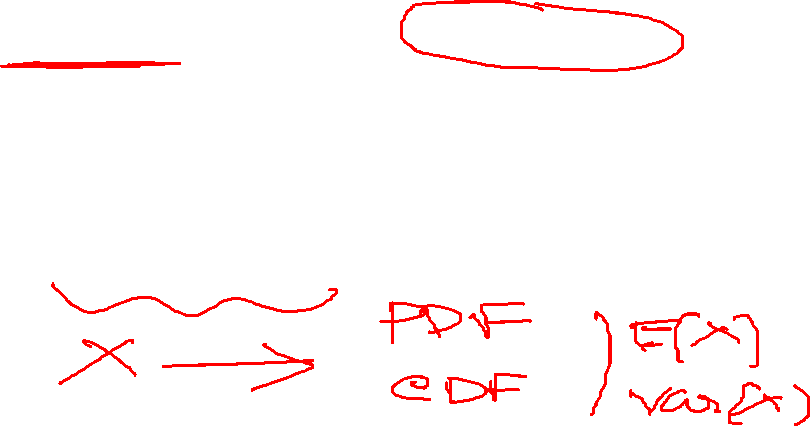 PDF
X → CDF ) E[X]
Var(X)